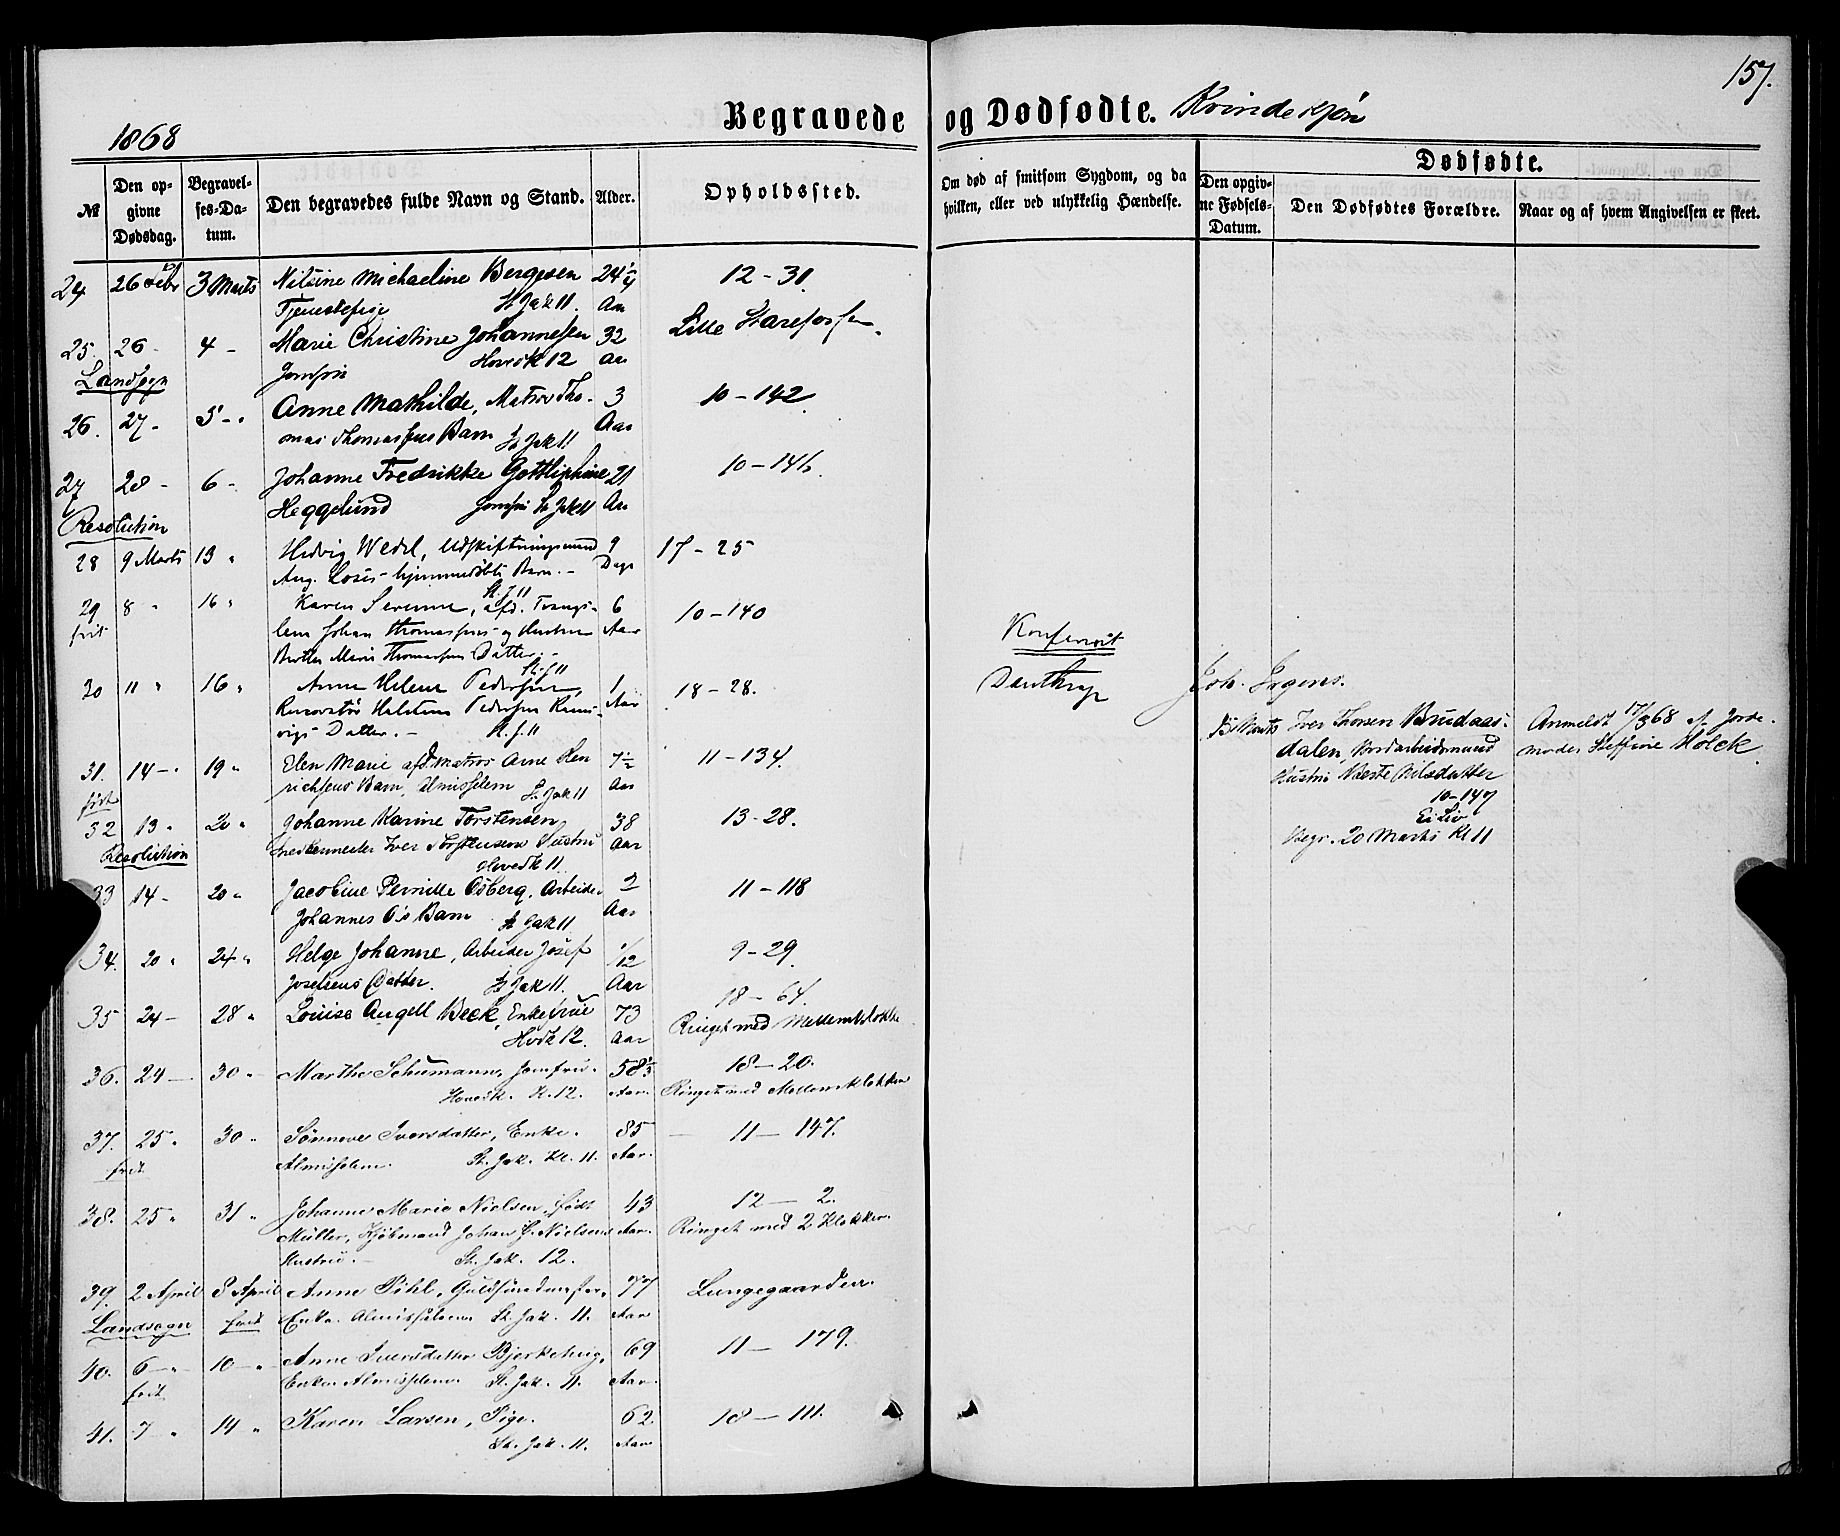 157.
Begravede og Dødfødte. Kvindekjøn
1868
№
Den opgivne Dødsdag.
Begravelses-Datum.
Den begravedes fulde Navn og Stand.
Alder.
Opholdssted.
Om død af smitsom Sygdom, og da hvilken, eller ved ulykkelig Hændelse.
Dødfødte.
Den opgivne Fødsels-Datum.
Den Dødfødtes Forældre.
Naar og af hvem Angivelsen er skeet.
24 26 Febr 3 Marts Nilsine Michaeline Bergesen 24 Aar 12-31.
Tjenestepige St. Jak 11.
25. 26 - 4 - Marie Christine Johannessen 32 Aar Lille
Landsogn Jomfru Hovedk 12
26. 27 - 5 - Anne Mathilde, Matros Tho- 3 Aar 10-142
mas Thomassens Barn St Jak 11
27 28 - 6 - Johanne Fredrikke 21 Aar
Resolution Heggelund Jomfru St Jak 11
28 9 Marts 13 " Hedvig Wedel, Udskiftningsmand 9 Dage 17-25
Aug. hjemmedøbte Barn. -
St. J 11
29 8 " 16 " Karen Serine, afd. 6 Aar 10-140
frit Johan Thomassens og Hustru
Marie Thomassens Datter. -
St. J 11
30 11 " 16 " Anne Helene Pedersen, 1 Aar 18-28.
Halsten Pedersen
Datter. - St. J. 11
31. 14 - 19 " Elen Marie afd. Matros Arne Hen 7½ Aar 11-134.
frit richsens Barn, Almisselem St Jak 11
32 13 " 20 " Johanne Karine Torstensen 38 Aar 13-28.
Resolution Snedkermester Iver Torstensens Hustru
Hovedk 11.
33 14 - 20 " Jacobine Pernille Osberg. Arbeider 2 Aar 11-118
Johannes O's Barn St Jak 11
34. 20 " 24 " Helge Johanne, Arbeider Josef 1/12 Aar 9-29.
Josefsens Datter. St Jak 11.
35 24 - 28 " Louise Angell Beck, Enkefrue 73 Aar 18-64.
Hvdk 12. Ringet med Mellemklokke
36. 24 - 30 " Marthe Schumann, Jomfru. 58½ Aar. 18-20.
Hovedk. K. 12. Ringet med Mellemklokken
37. 25 " 30 " Synneve Iversdatter, Enke. 85 Aar. 11-147.
frit Almisselem. St. Jak. Kl. 11.
38. 25 " 31 " Johanne Marie Nielsen, født 43 Aar. 12-2.
Müller, Kjøbmand Johan Nielsens Ringet med 2 Klokker.
Hustru. - St. Jak. 12.
39. 2 April 8 April Anne Pihl, 77 Aar Lungegaarden.
Landsogn frit Enke. Almisselem St. Jak. 11.
40. 6 - " 10 - " Anne Iversdatter Bjerkehug, 69 Aar. 11-179.
frit Enke Almisselem St. Jak. 11.
41. 7 " 14 " Karen Larsen, Pige. 62. Aar 18-111.
St. Jak. 11.
Marts Iver Thorsen
dalen,
Hustru Nilsdatter
10-147
Ei Liv
Begr. 20 Marts Kl 11
Anmeldt 17/3 68 af Jorde-
moder Holck